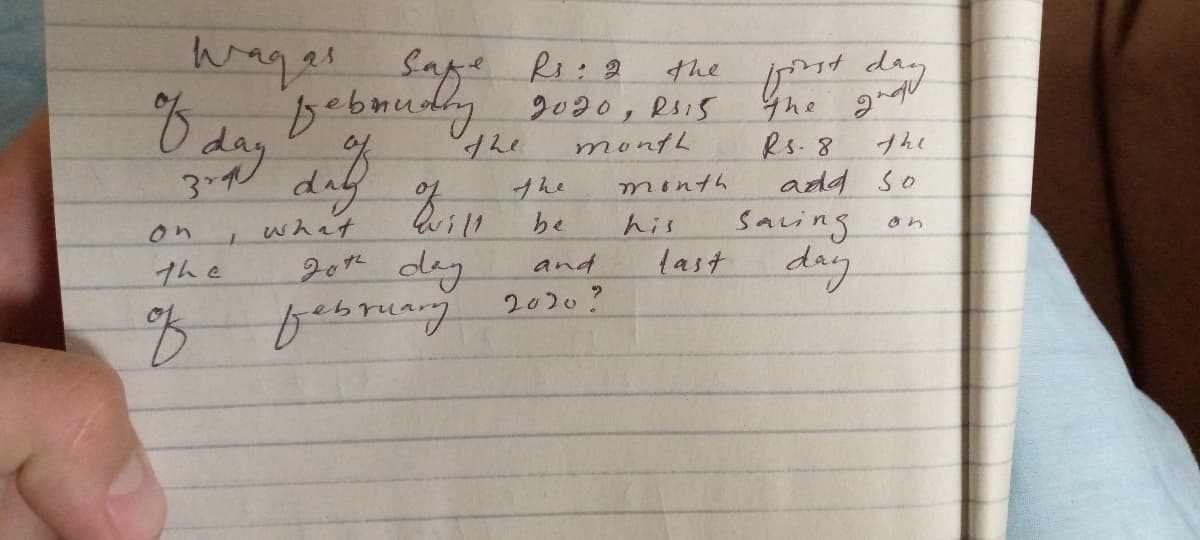 Waqas Safe Rs: 2 the first day
of february 2020, Rs:5 the 2nd
day of the month Rs. 8 the
3rd day of the month add so
on, what will be his Saving on
the 20th day and last day
of february 2020?